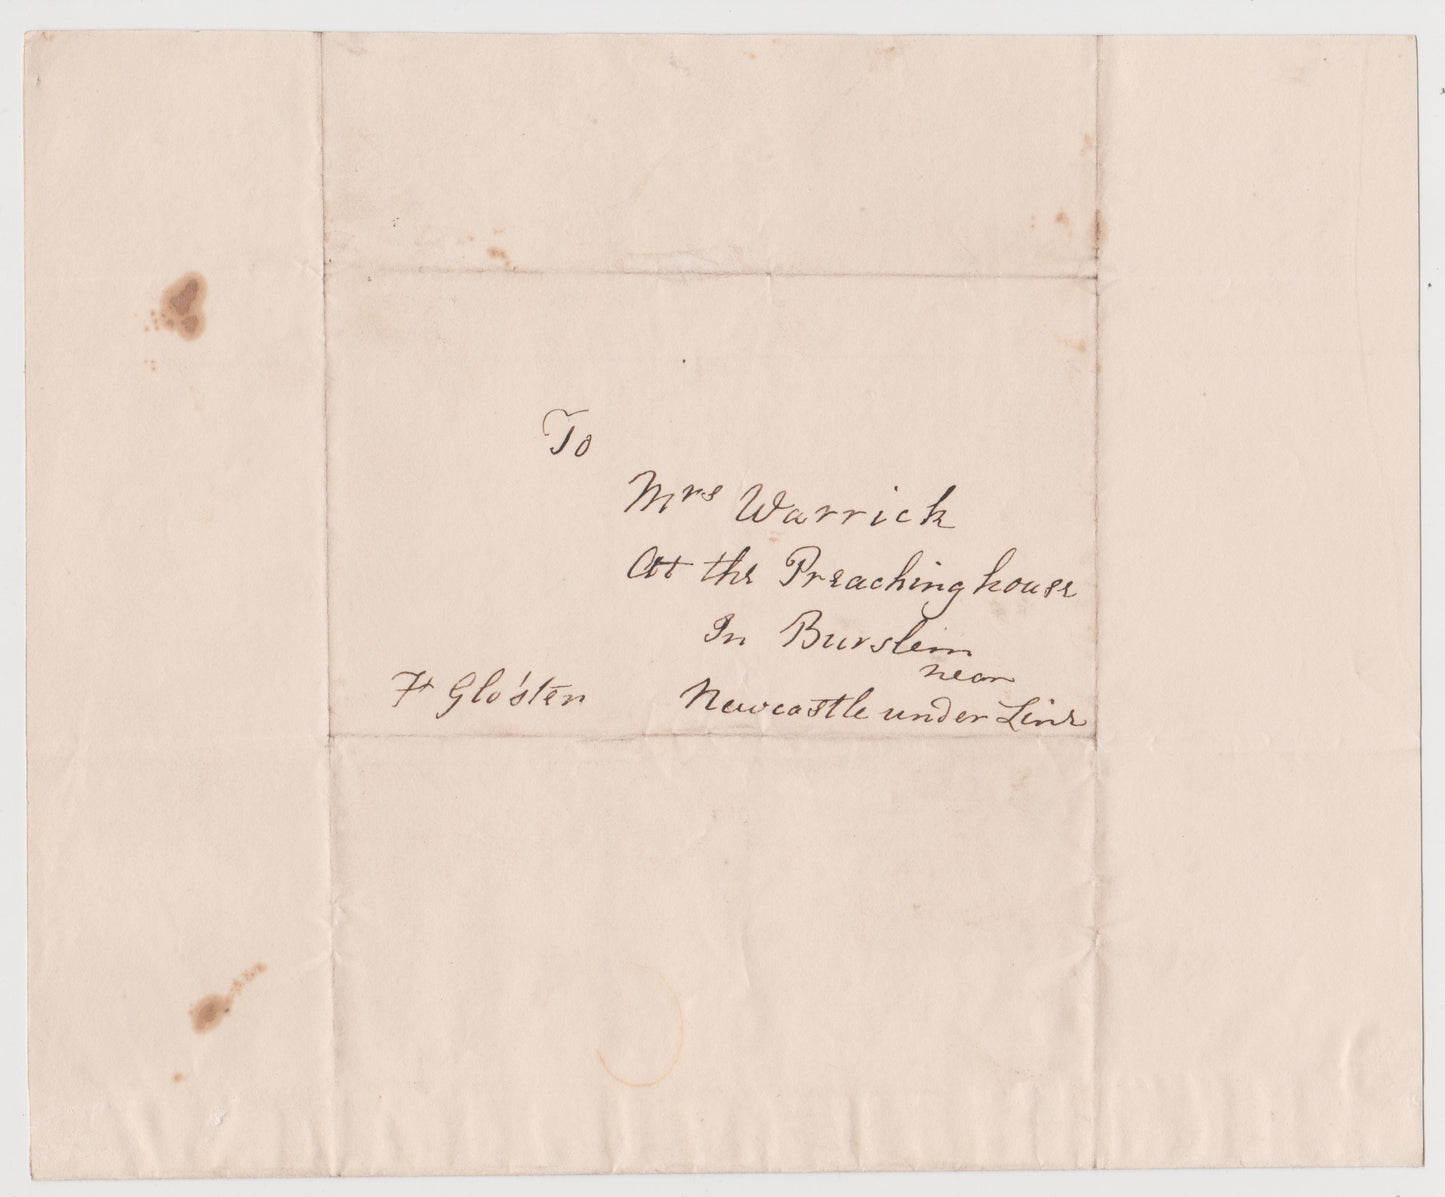 To
Mrs Warrick
At the Preaching house
In Burslem
near
Newcastle under Line
Glo'ster